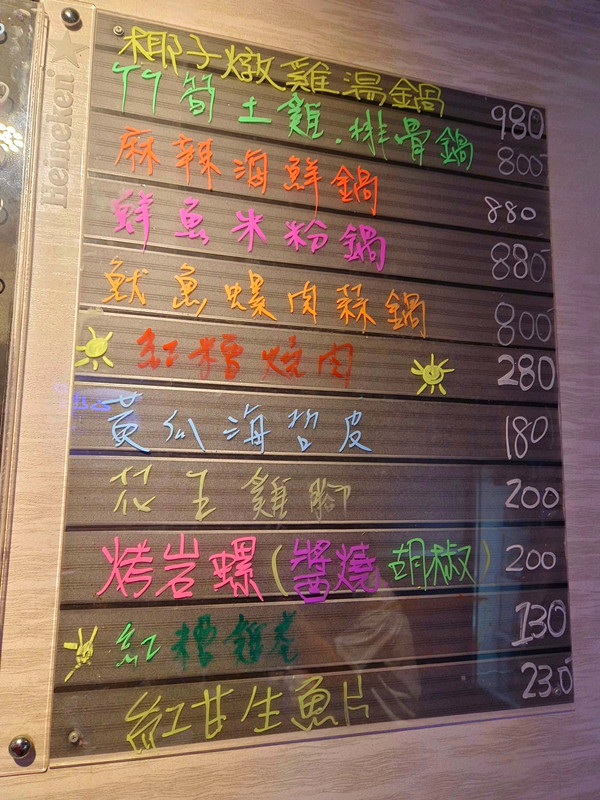 Heineken
椰子燉雞湯鍋 980
竹筍土雞.排骨鍋 800
麻辣海鮮鍋 880
鮮魚米粉鍋 880
魷魚螺肉蒜鍋 800
紅糟燒肉 280
黃瓜海哲皮 180
花玉雞腳 200
烤岩螺(醬燒 胡椒) 200
紅糟雞卷 130
紅甘生魚片 230